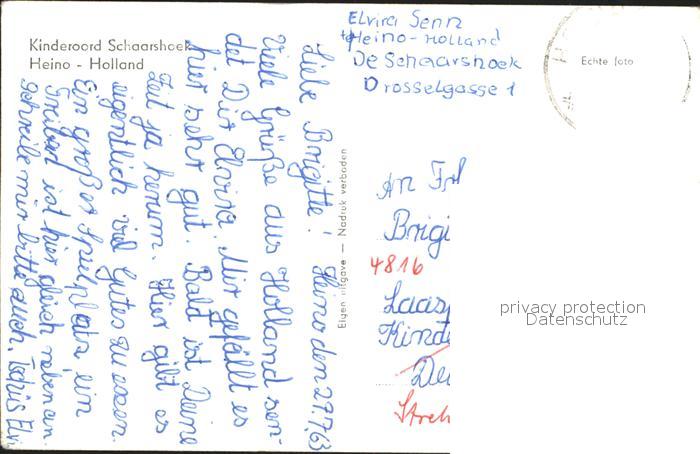 Kinderoord Schaarshoek
Heino - Holland
Elvira Senn
Heino-Holland
De Schaarshoek
Drosselgasse 1
Echte foto
Liebe Brigitte! Heino den 27.7.63
Viele Grüße aus Holland sen-
det Dir Elvira. Mir gefällt es
hier sehr gut. Bald ist Deine
Zeit ja herum. Hier gibt es
eigentlich viel Gutes zu essen.
Ein großer Spielplatz, ein
Freibad ist hier gleich nebenan.
Schreibe mir bitte auch. Tschüs Elvi
Eigen uitgave — Nadruk verboden
An Frl
Brigi
4816
Laasp
Kinde
De
Streh
privacy protection
Datenschutz